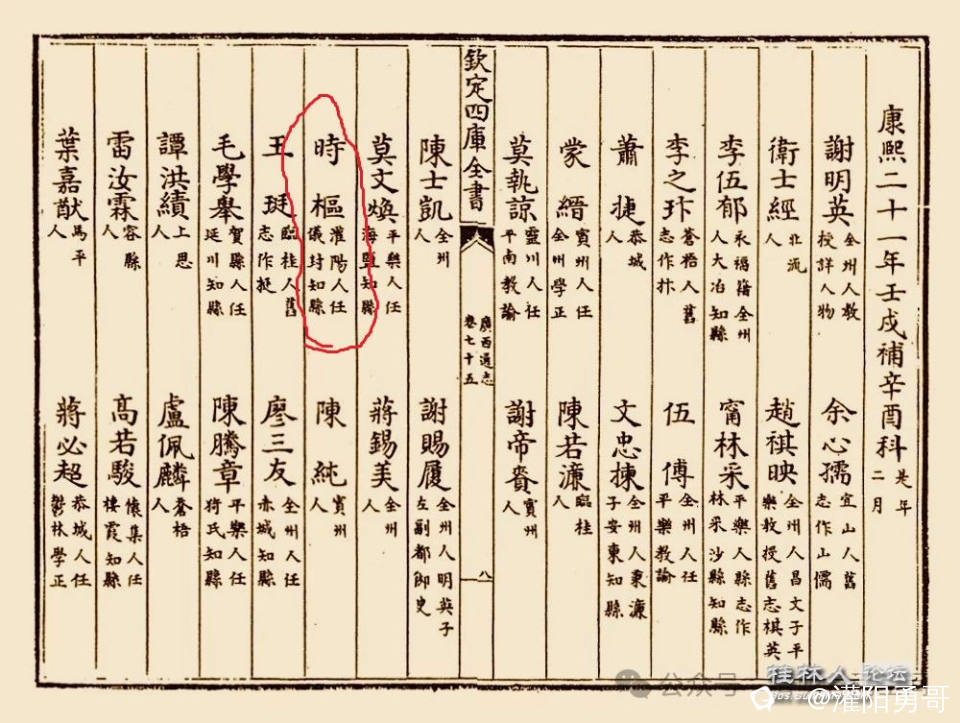 康熙二十一年壬戌補辛酉科 是年二月
謝明英 全州人教授詳人物 余心孺 宜山人舊志作山儒
衛士經 北流人 趙祺映 全州人昌文子平樂教授舊志棋英
李伍郁 永福籍全州人大冶知縣 甯林采 平樂人縣志作林采沙縣知縣
李之玣 蒼梧人舊志作抃 伍傅 全州人任平樂教諭
蕭捷 恭城人 文忠揀 全州人秉濂子安東知縣
蒙縉 賓州人任全州學正 陳若濂 臨桂人
莫執諒 靈川人任平南教諭 謝帝賚 賓州人
欽定四庫全書 廣西通志卷七十五 八
陳士凱 全州人 謝賜履 全州人明英子左副都御史
莫文煥 平樂人任海鹽知縣 蔣錫美 全州人
時樞 灌陽人任儀封知縣 陳純 賓州人
王珽 臨桂人舊志作挺 廖三友 全州人任赤城知縣
毛學舉 賀縣人任延川知縣 陳騰章 平樂人任猗氏知縣
譚洪績 上思人 盧佩麟 蒼梧人
雷汝霖 容縣人 高若駿 懷集人任棲霞知縣
葉嘉猷 馬平人 蔣必超 恭城人任鬱林學正
公众号
桂林人论坛
@灌阳勇哥